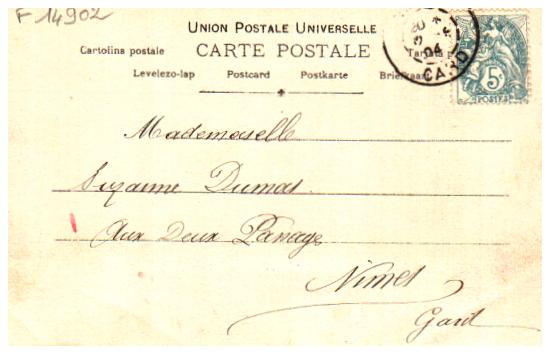 F 14902
UNION POSTALE UNIVERSELLE
Cartolina postale CARTE POSTALE
Levelezo-lap Postcard Postkarte Briefkaart
04
GARD
5c
POSTES
Mademoiselle
Suzanne Dumas
Aux Deux Passage
Nimes
Gard